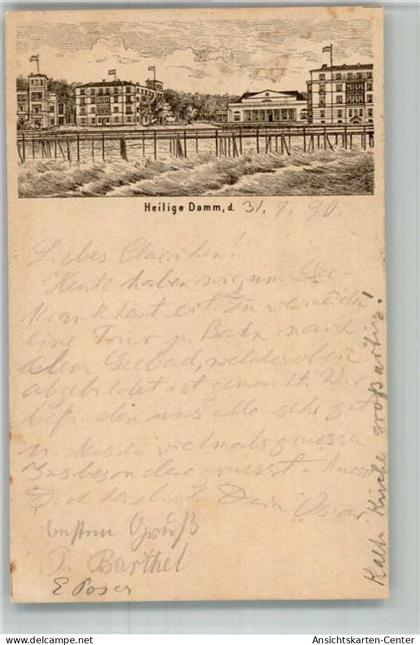 Heilige Damm, d. 31. 7. 90.
Liebes Clärchen!
Heute haben wir, um See-
krankheit zu vermeiden
eine Tour p. Bahn nach
dem Seebad, welches oben
abgebildet ist gemacht. Wir
befinden uns alle sehr gut
u. lassen vielmals grüssen
Insbesondere grüsst
Dich herzlich Dein Oscar
besten Gruß
Barthel
E Poser
Kalte Küche großartig!
www.delcampe.net
Ansichtskarten-Center